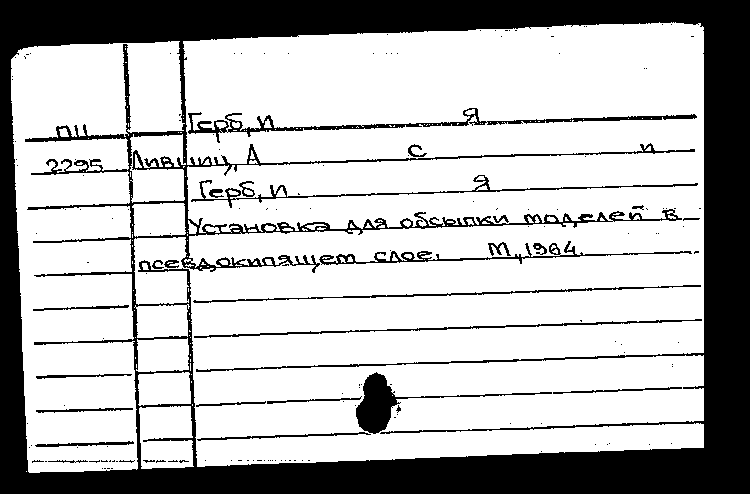 П11 Герб, И Я
2295 Лившиц, А С и
Герб, И. Я
Установка для обсыпки моделей в
псевдокипящем слое. М., 1964.